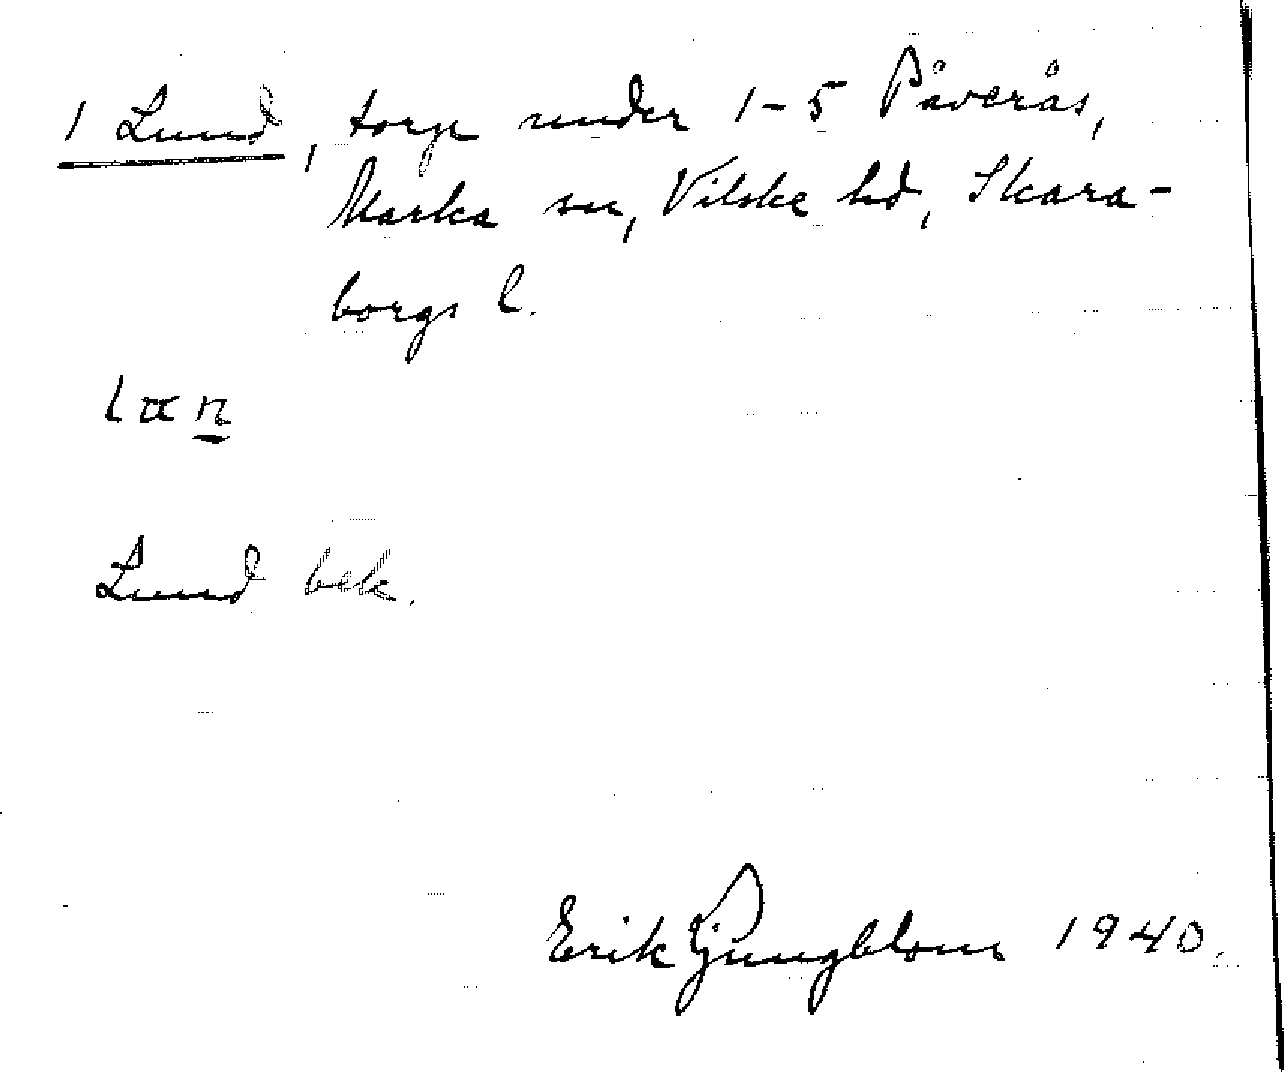 1 Lund, torp under 1-5 Påverås,
Marka sn, Vilske hd, Skara-
borgs l.
lan
Lund bek.
Erik Ljungblom 1940.